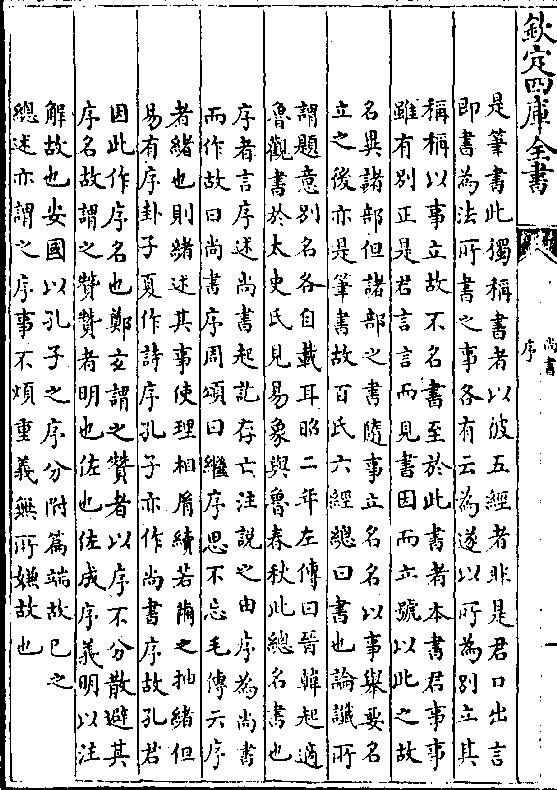 欽定四庫全書
尚書
序
是筆書此獨稱書者以彼五經者非是君口出言
即書為法所書之事各有云為遂以所為別立其
稱稱以事立故不名書至於此書者本書君事事
雖有別正是君言言而見書因而立號以此之故
名異諸部但諸部之書隨事立名名以事舉要名
立之後亦是筆書故百氏六經總曰書也論讖所
謂題意別名各自載耳昭二年左傳曰晉韓起適
魯觀書於太史氏見易象與魯春秋此總名書也
序者言序述尚書起訖存亡注說之由序為尚書
而作故曰尚書序周頌曰繼序思不忘毛傳云序
者緒也則緒述其事使理相胤續若繭之抽緒但
易有序卦子夏作詩序孔子亦作尚書序故孔君
因此作序名也鄭玄謂之贊者以序不分散避其
序名故謂之贊贊者明也佐也佐成序義明以注
解故也安國以孔子之序分附篇端故已之
總述亦謂之序事不煩重義無所嫌故也